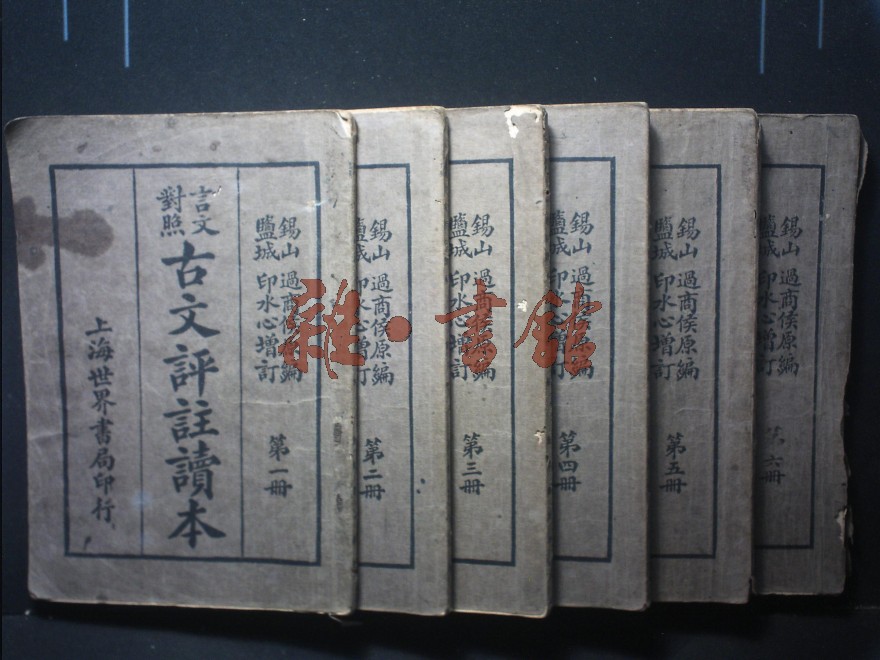 錫山 過商侯原編
鹽城 印水心增訂
第一冊
言文
對照
古文評註讀本
上海世界書局印行
錫山 過商侯原編
鹽城 印水心增訂
第二冊
錫山 過商侯原編
鹽城 印水心增訂
第三冊
錫山 過商侯原編
鹽城 印水心增訂
第四冊
錫山 過商侯原編
鹽城 印水心增訂
第五冊
錫山 過商侯原編
鹽城 印水心增訂
第六冊
雜·書館